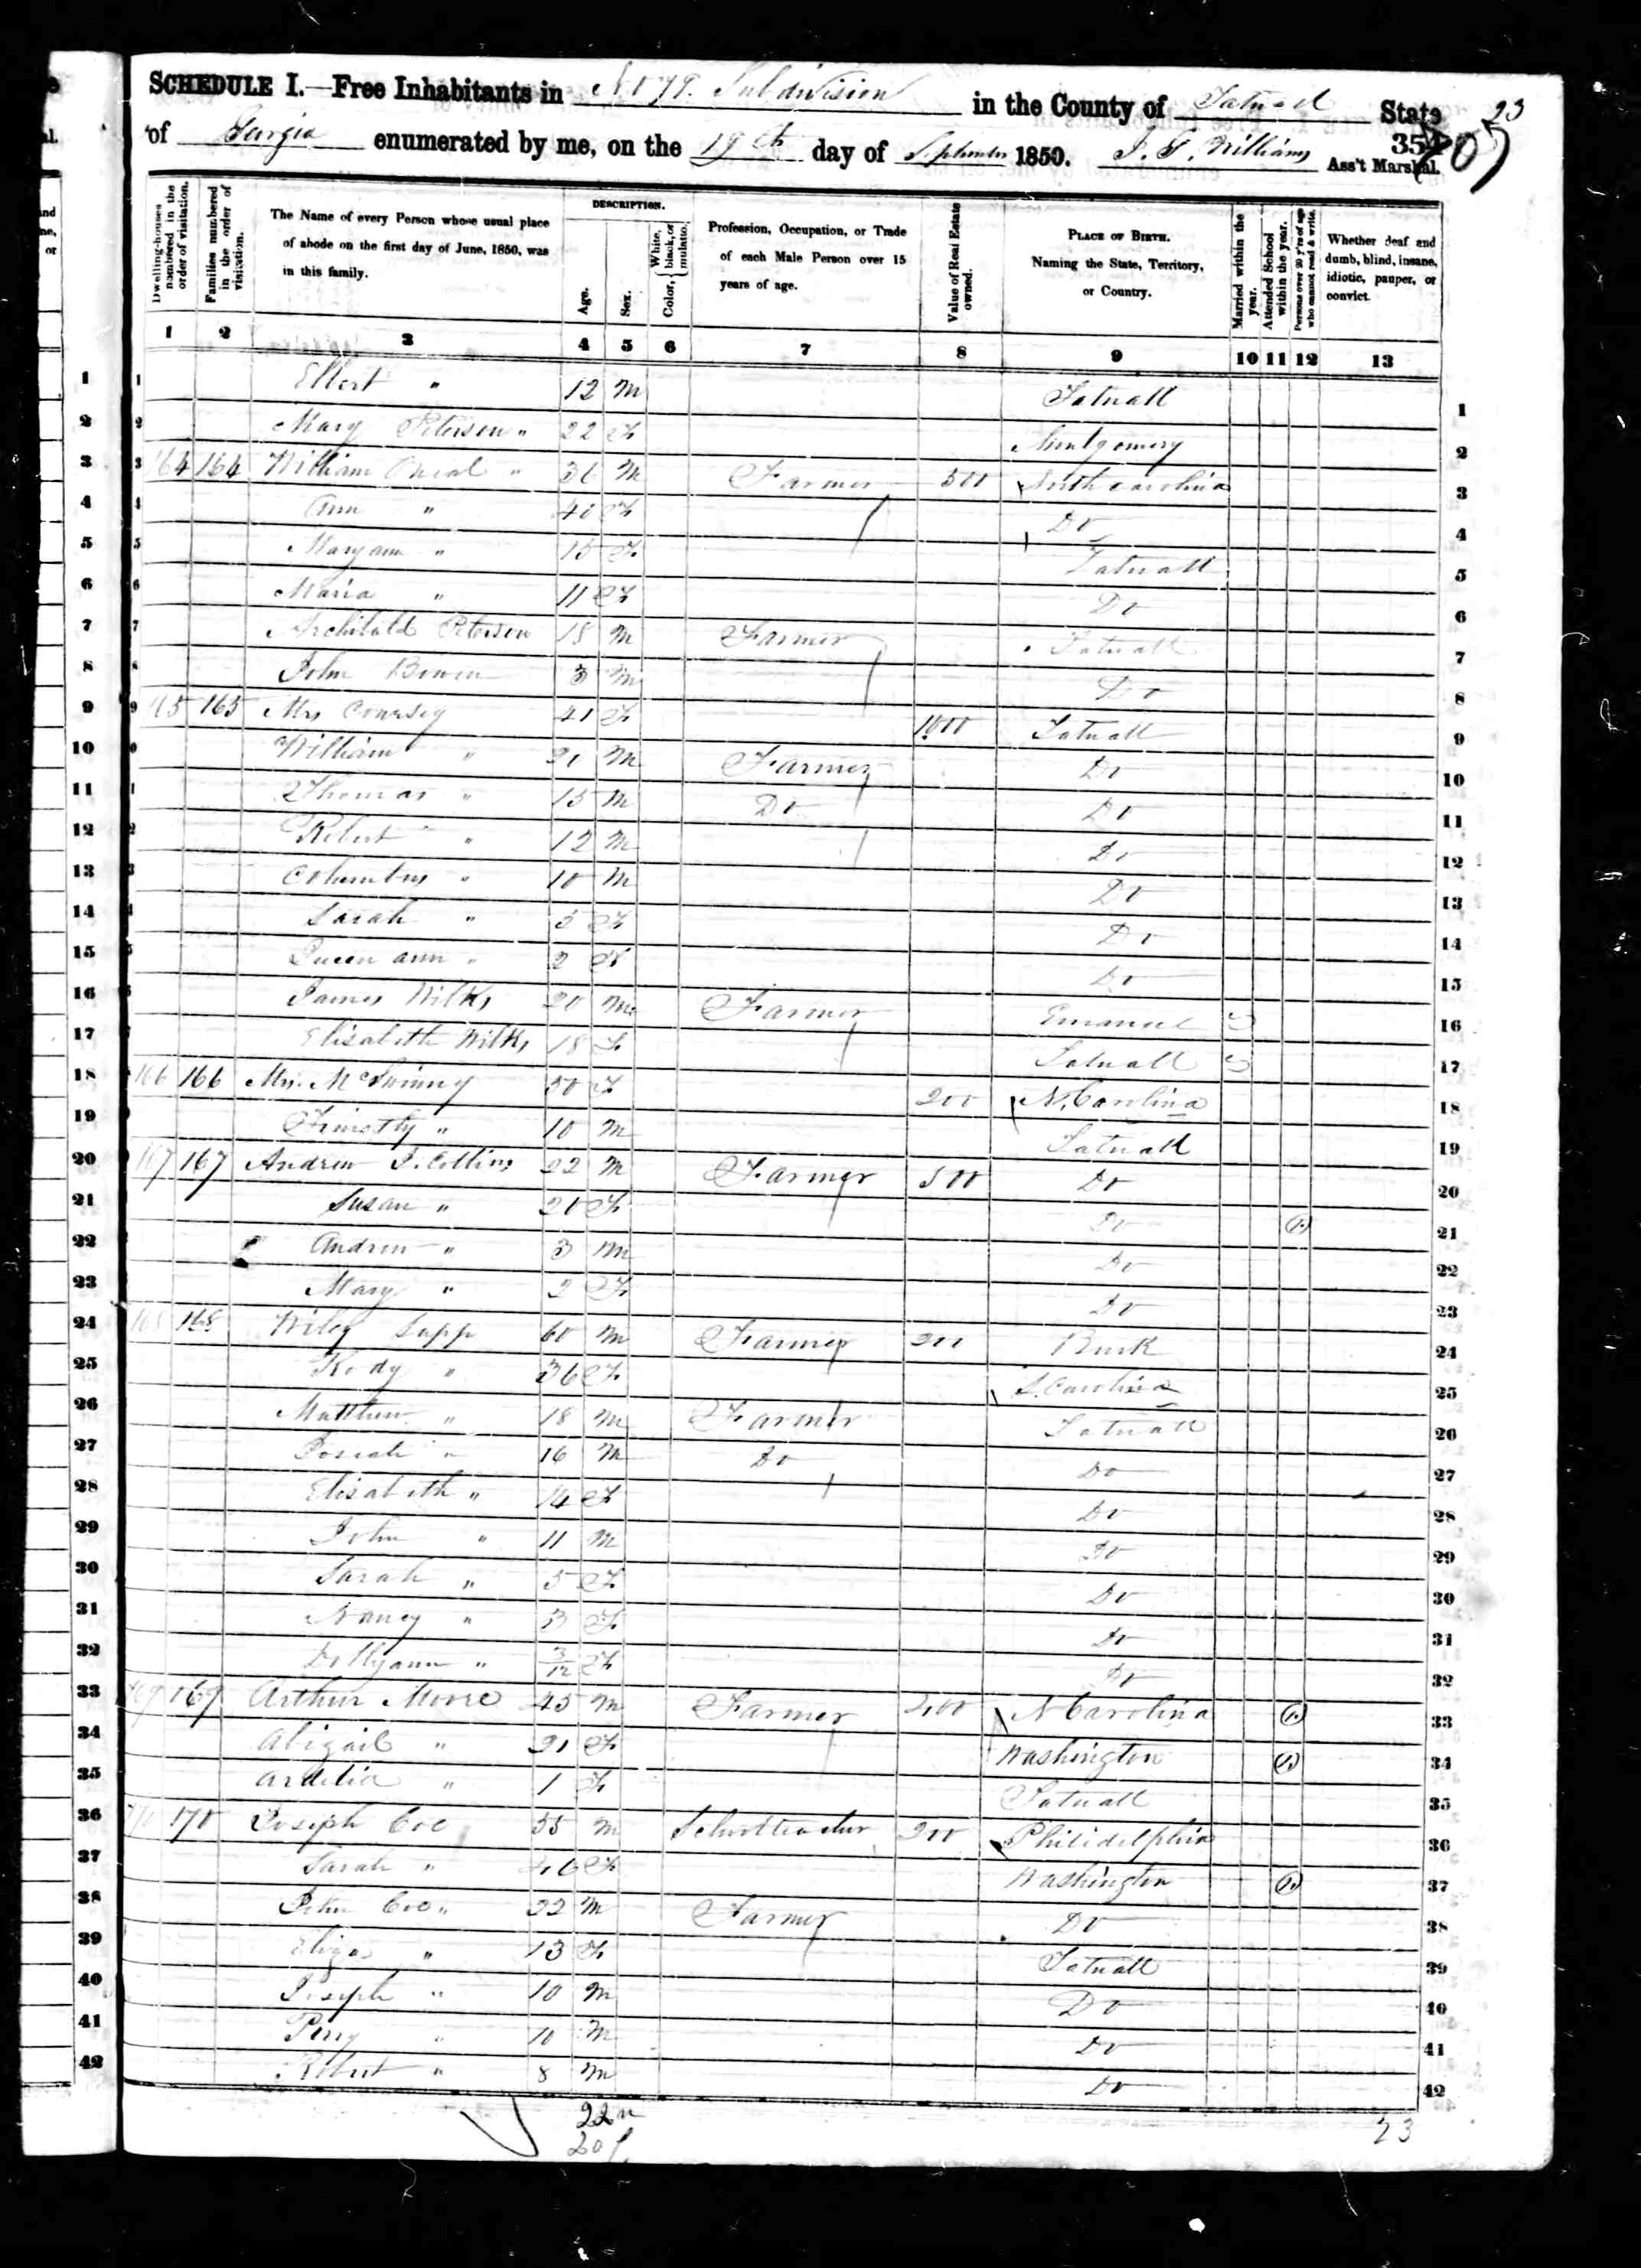 SCHEDULE I.—Free Inhabitants in No 79. Subdivision in the County of Tatnall State 23
of Georgia enumerated by me, on the 19th day of September 1850. J. T. Williams Ass't Marshal.
Dwelling-houses numbered in the order of visitation.
Families numbered in the order of visitation.
The Name of every Person whose usual place of abode on the first day of June, 1850, was in this family.
DESCRIPTION.
Age.
Sex.
Color, { White, black, or mulatto.
Profession, Occupation, or Trade of each Male Person over 15 years of age.
Value of Real Estate owned.
PLACE OF BIRTH.
Naming the State, Territory, or Country.
Married within the year.
Attended School within the year.
Persons over 20 y'rs of age who cannot read & write.
Whether deaf and dumb, blind, insane, idiotic, pauper, or convict.
1 2 3 4 5 6 7 8 9 10 11 12 13
1 Elbert " 12 M Tatnall 1
2 Mary Peterson " 22 F Montgomery 2
3 164 164 William Oneal " 36 M Farmer 500 North carolina 3
4 Ann " 40 F Do 4
5 Maryann " 15 F Tatnall 5
6 Maria " 11 F Do 6
7 Archibald Peterson 18 M Farmer Tatnall 7
8 John Bowen 3 M Do 8
9 165 165 Mrs Coursey 41 F 1000 Tatnall 9
10 William " 21 M Farmer Do 10
11 Thomas " 15 M Do Do 11
12 Robert " 12 M Do 12
13 Columbus " 10 M Do 13
14 Sarah " 5 F Do 14
15 Queen ann " 2 F Do 15
16 James Wilks 20 M Farmer Emanuel 16
17 Elisabeth Wilks 18 F Tatnall 17
18 166 166 Mrs. McSwinny 50 F 200 N. Carolina 18
19 Timothy " 10 M Tatnall 19
20 167 167 Andrew J. Collins 22 M Farmer 500 Do 20
21 Susan " 20 F Do 21
22 Andrew " 3 M Do 22
23 Mary " 2 F Do 23
24 168 168 Wiley Sapp 60 M Farmer 200 Burk 24
25 Kody " 36 F S. Carolina 25
26 Matthew " 18 M Farmer Tatnall 26
27 Josiah " 16 M Do Do 27
28 Elisabeth " 14 F Do 28
29 John " 11 M Do 29
30 Sarah " 5 F Do 30
31 Nancy " 3 F Do 31
32 Dollyann " 3/12 F Do 32
33 169 169 Arthur Moore 45 M Farmer 200 N Carolina 33
34 Abigail " 21 F Washington 34
35 Ardelia " 1 F Tatnall 35
36 170 170 Joseph Coe 55 M Schoolteacher 200 Philidelphia 36
37 Sarah " 46 F Washington 37
38 John Coe " 22 M Farmer Do 38
39 Elizas " 13 F Tatnall 39
40 Joseph " 10 M Do 40
41 Perry " 10 M Do 41
42 Robert " 8 M Do 42
22 m
20 f
23